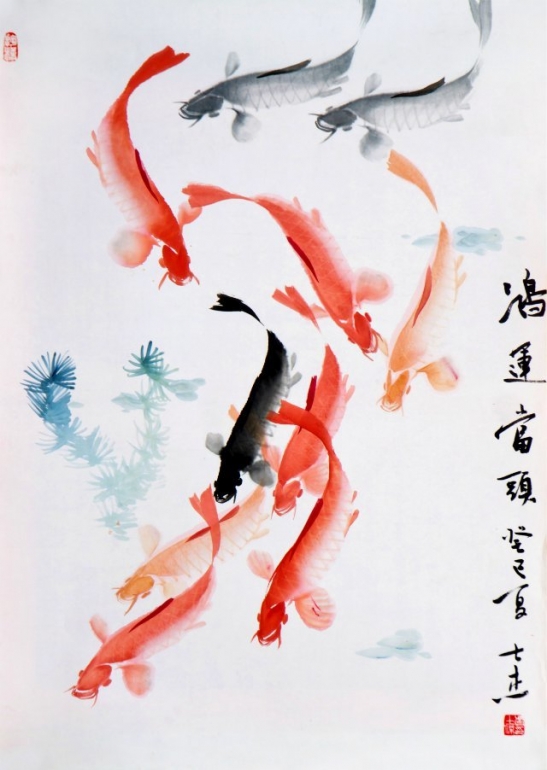 鴻運當頭 癸巳夏 士杰